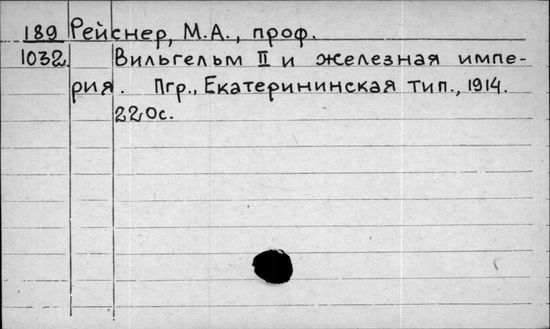 189 Рейснер, М.А., проф.
1032 Вильгельм II и железная импе-
рия. Пгр., Екатерининская тип., 1914.
220с.